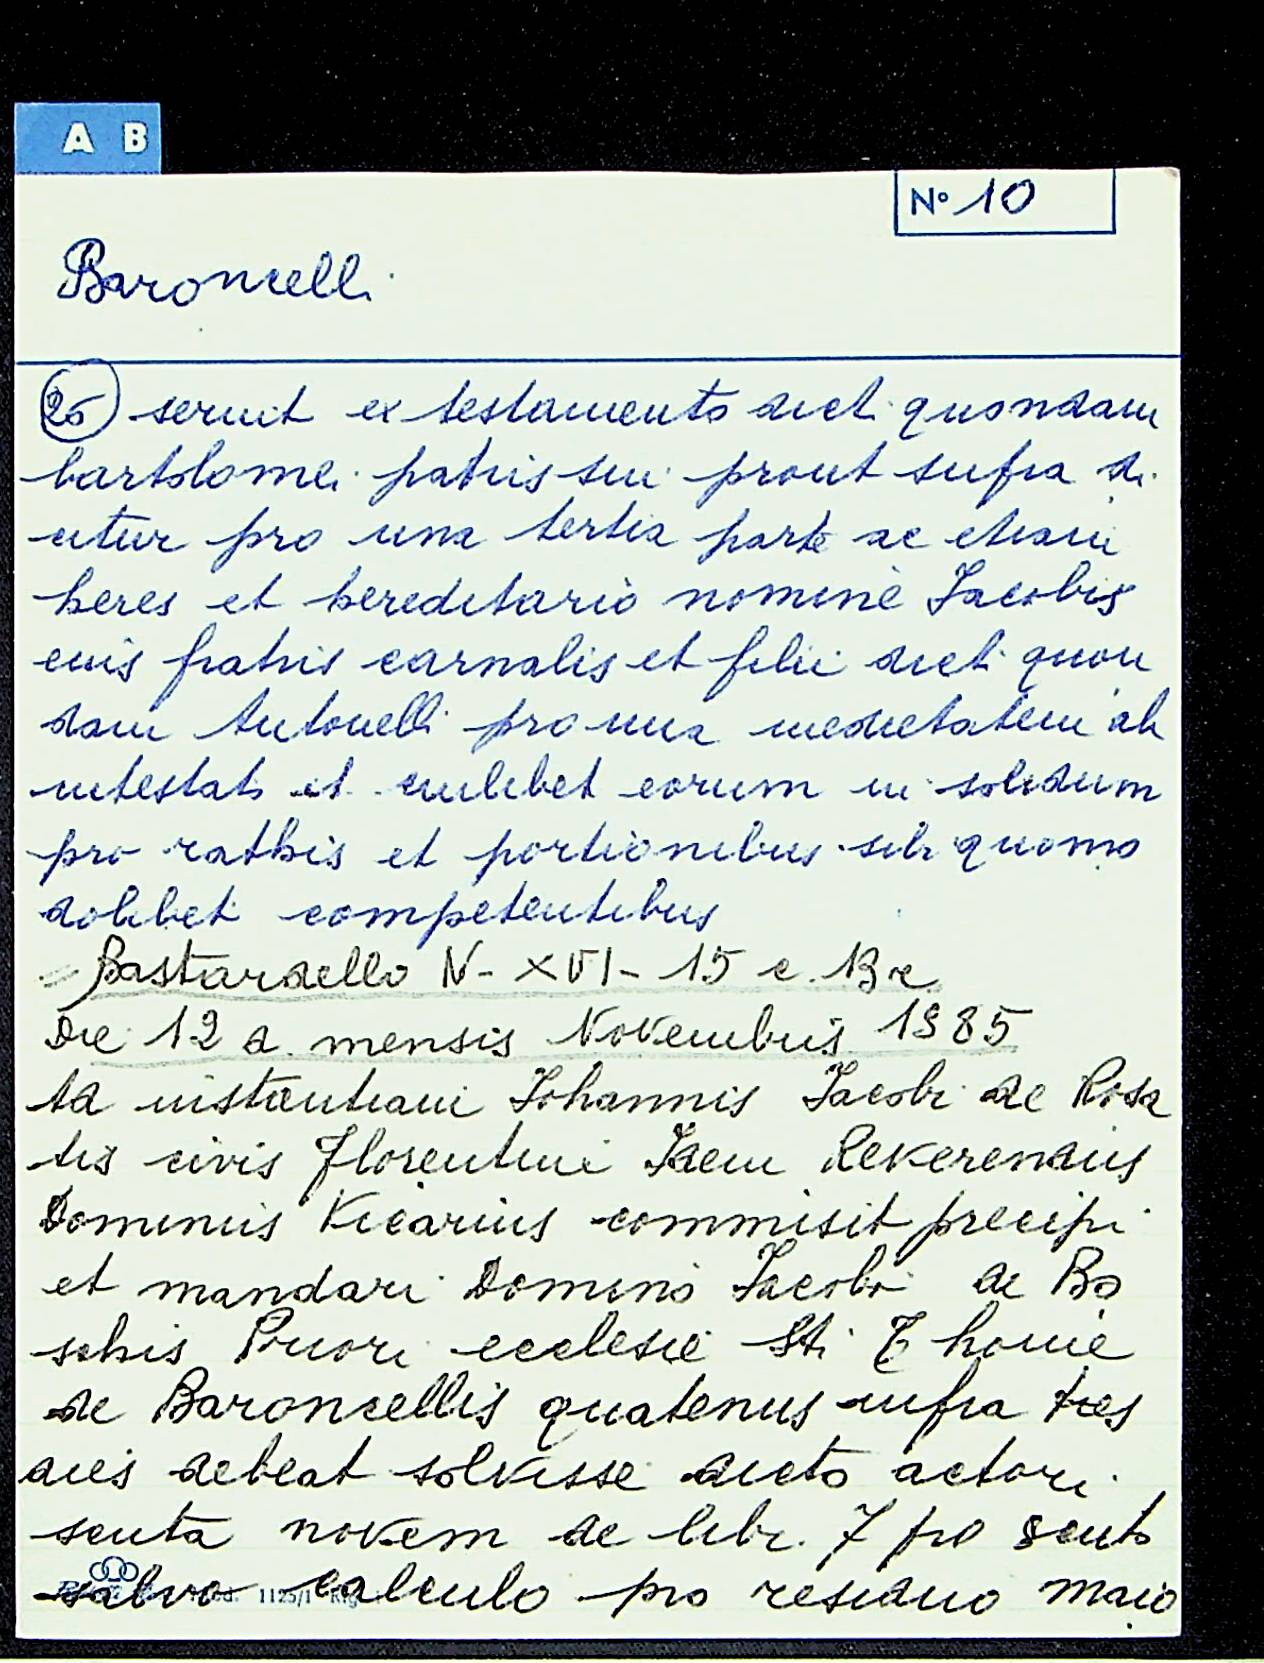 A B
N° 10
Baroncelli
25 seruit ex testamento dicti quondam
bartolomei patris sui prout supra di
citur pro una tertia parte ac etiam
heres et hereditario nomine Jacobis
euis fratris carnalis et filii dicti quon
dam Antonelli pro una medietatem ab
intestato et cuilibet eorum in solidum
pro rathis et portionibus sibi quomo
dolibet competentibus
= Bastardello N- XVI- 15 c. 13 r
Die 12 a. mensis Novembris 1585
ta instantiam Johannis Jacobi de Rosa
tis civis florentini Idem Reverendus
Dominus Vicarius commisit precipi
et mandari Domino Jacobo de Bo
schis Priori ecclesie Sti Thome
de Baroncellis quatenus infra tres
dies debeat solvisse dicto actori
scuta novem de libr. 7 pro scuto
salvo calculo pro residuo maio
1125/1